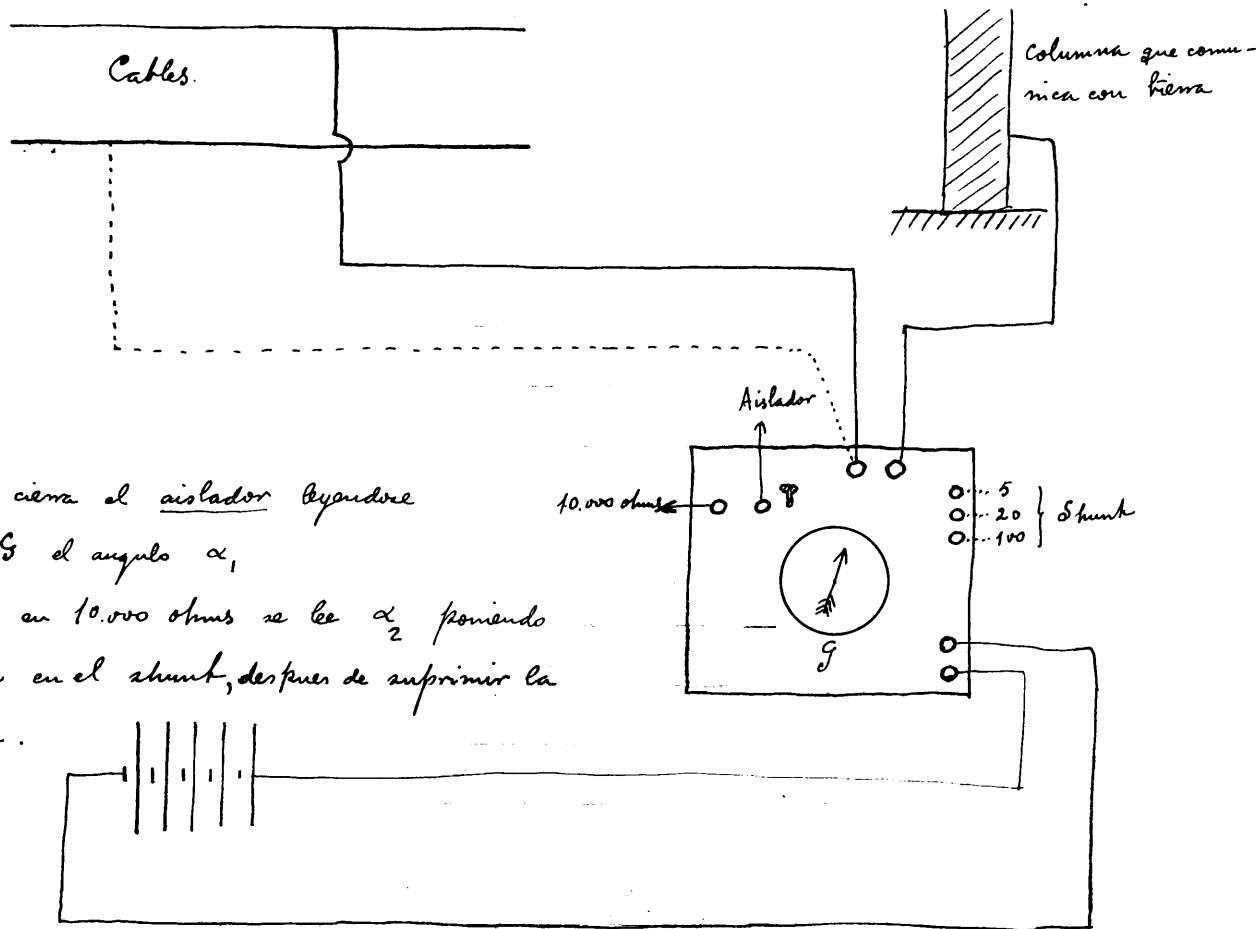 Cables.
columna que comu-
nica con tierra
Aislador
10.000 ohms
5
20
100
Shunt
G
cierra el aislador leyendose
G el angulo α₁
en 10.000 ohms se lee α₂ poniendo
en el shunt, despues de suprimir la